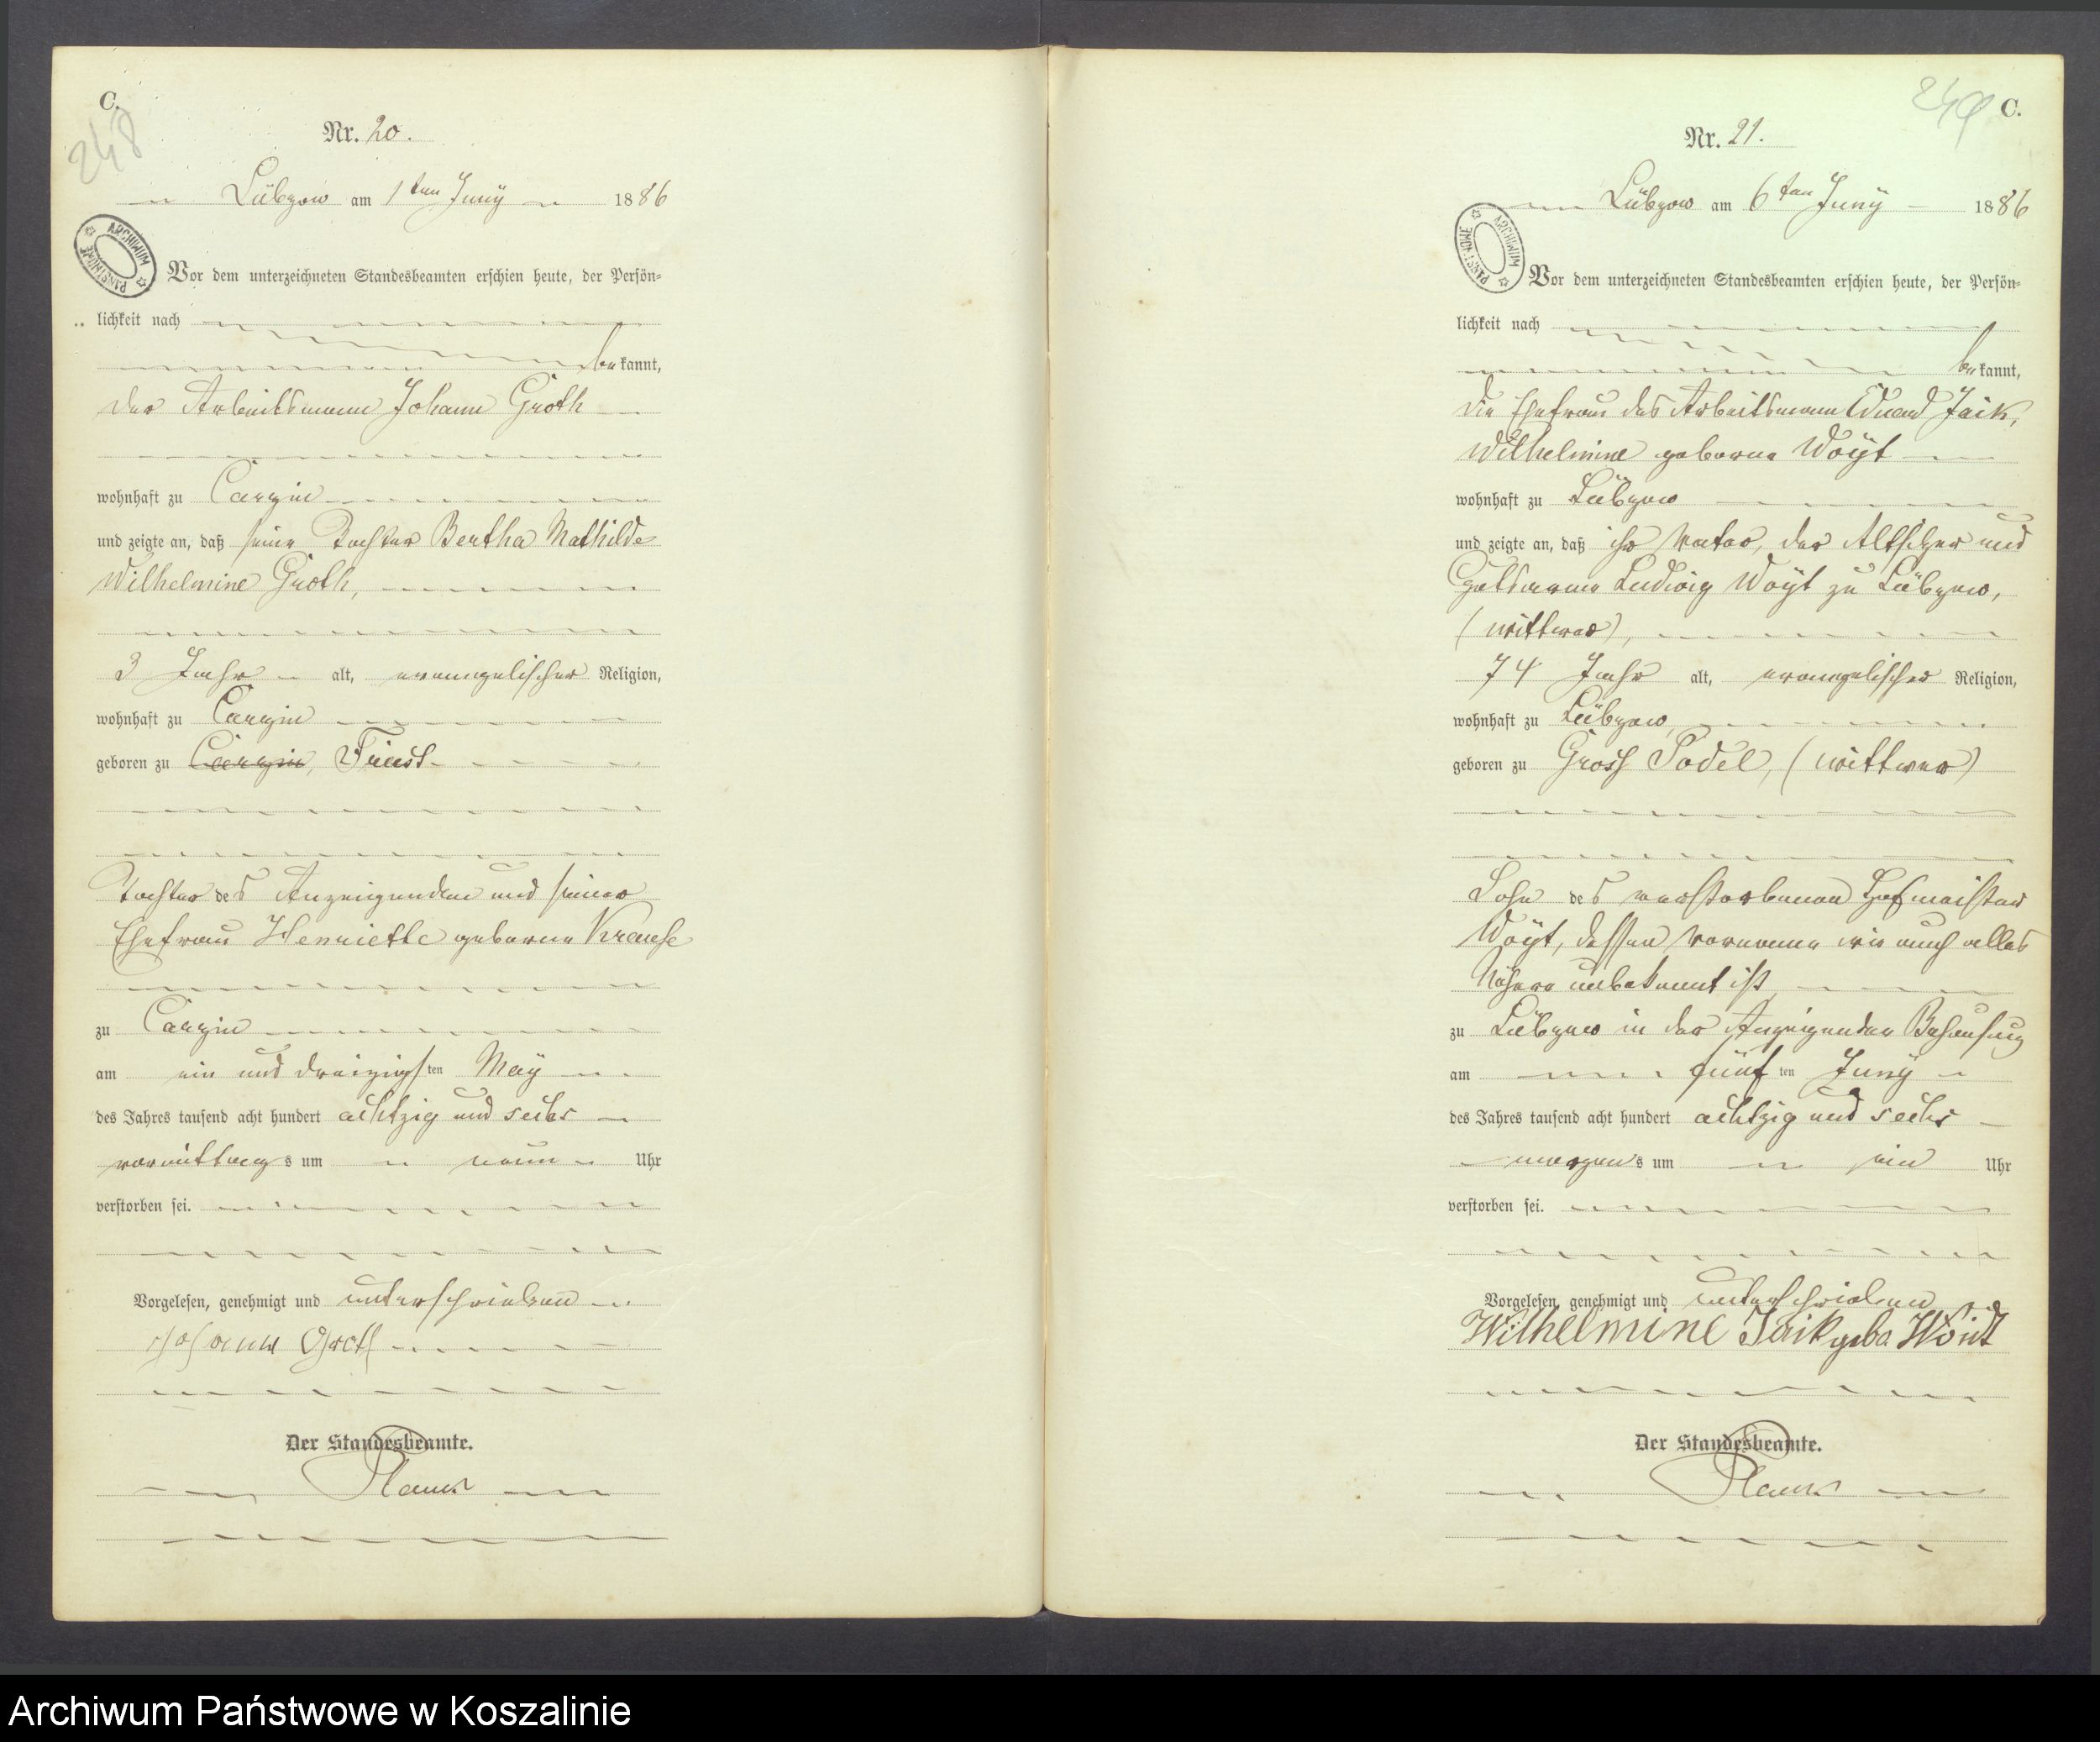 C.
248
Nr. 20.
Lübzow am 1ten Juny 1886
ARCHIWUM PAŃSTWOWE
Vor dem unterzeichneten Standesbeamten erschien heute, der Persön-
lichkeit nach
bekannt,
der Arbeitsmann Johann Groth
wohnhaft zu Carzin
und zeigte an, daß seine Tochter Bertha Mathilde
Wilhelmine Groth,
3 Jahr alt, evangelischer Religion,
wohnhaft zu Carzin
geboren zu Carzin,
Tochter des Anzeigenden und seiner
Ehefrau Henriette geborene Krause
zu Carzin
am ein und dreizigsten May
des Jahres tausend acht hundert achtzig und sechs
vormittags um neun Uhr
verstorben sei.
Vorgelesen, genehmigt und unterschrieben
Johann Groth
Der Standesbeamte.
249
C.
Nr. 21.
Lübzow am 6ten Juny 1886
ARCHIWUM PAŃSTWOWE
Vor dem unterzeichneten Standesbeamten erschien heute, der Persön-
lichkeit nach
bekannt,
die Ehefrau des Arbeitsmann Eduard Jaik,
Wilhelmine geborne Woÿt
wohnhaft zu Lübzow
und zeigte an, daß ihr Vater, der Altsitzer und
Ludwig Woÿt zu Lübzow,
(Wittwer),
74 Jahr alt, evangelischer Religion,
wohnhaft zu Lübzow,
geboren zu Gross Podel, (Wittwer)
Sohn des verstorbenen Hofmeister
Woÿt, dessen Vorname wie auch alles
Nähere unbekannt ist
zu Lübzow in der Anzeigenden Behausung
am fünften Juny
des Jahres tausend acht hundert achtzig und sechs
morgens um ein Uhr
verstorben sei.
Vorgelesen, genehmigt und unterschrieben
Wilhelmine Jaik geba Woidt
Der Standesbeamte.
Archiwum Państwowe w Koszalinie